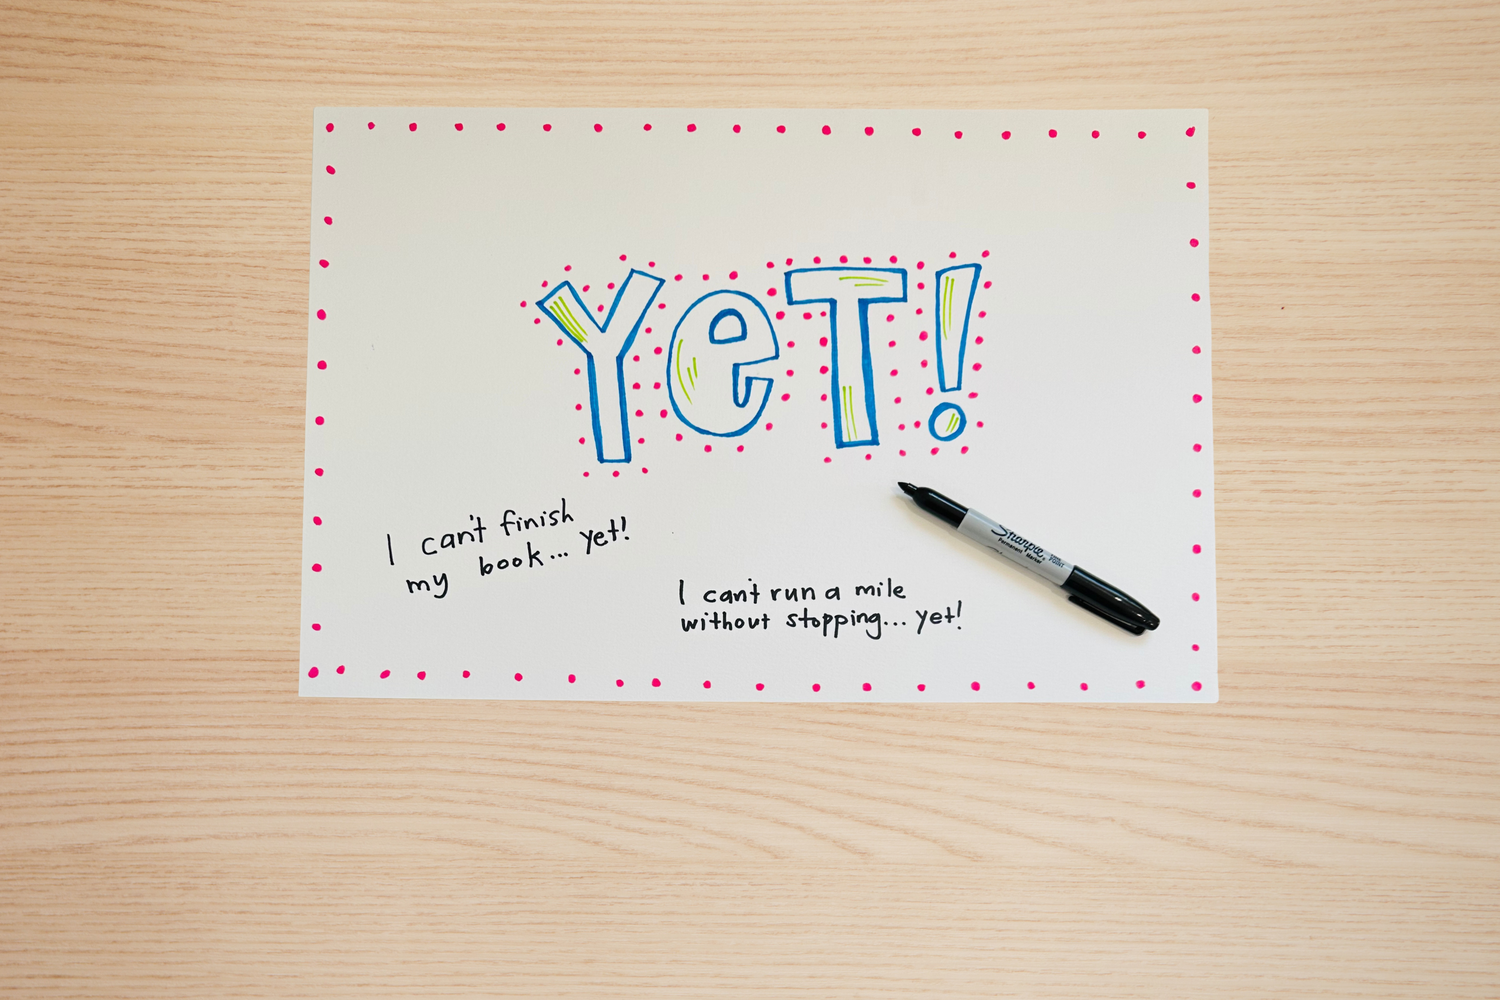 YeT!
I can't finish
my book... yet!
I can't run a mile
without stopping... yet!
Sharpie
Permanent Marker
FINE POINT